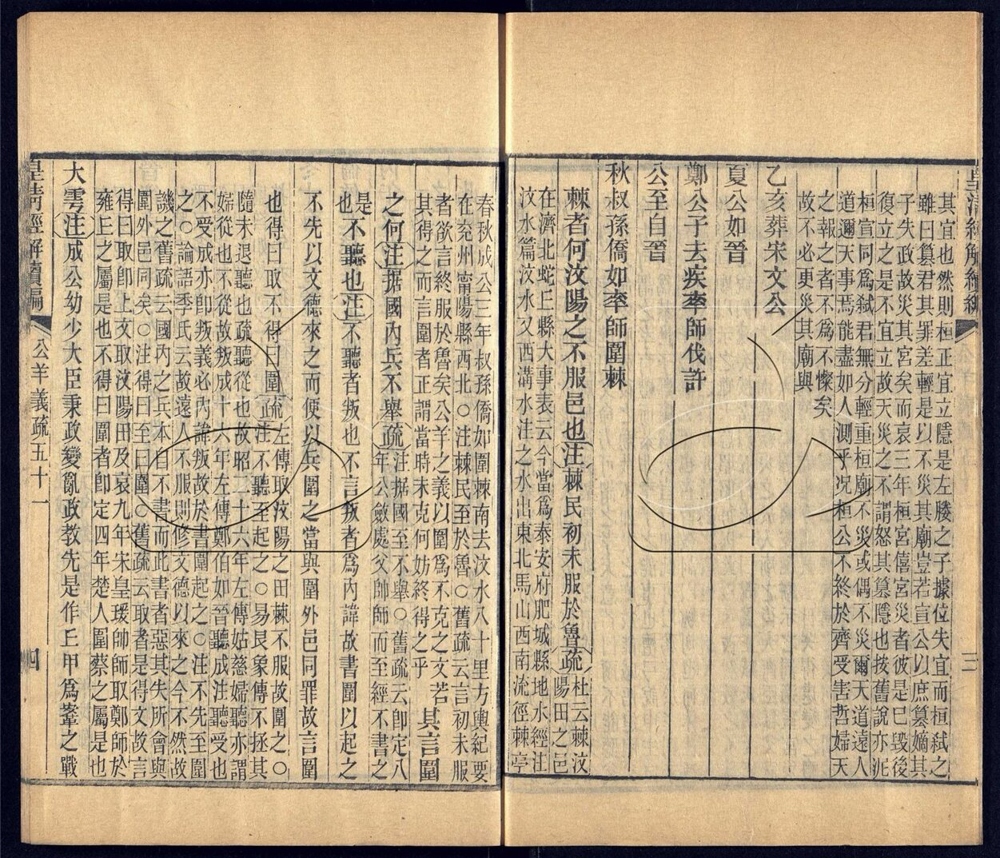 其宜也然則桓正宜立隱是左媵之子據位失宜而桓弒之
雖曰篡君其罪差輕是以不災其廟豈若宣公以庶篡嫡其
子失政故災其宮矣而哀三年桓宮僖宮災者彼是已毀後
復立之是不宜立故天災之不謂怒其篡隱也按舊說亦泥
桓宣同為弒君無分輕重桓廟不災或偶不災爾天道遠人
道邇天事焉能盡如人測乎況桓公不終於齊受害哲婦天
之報之者不為不慘矣
故不必更災其廟與
乙亥葬宋文公
夏公如晉
鄭公子去疾率師伐許
公至自晉
秋叔孫僑如率師圍棘
棘者何汶陽之不服邑也注棘民初未服於魯疏杜云棘汶
陽田之邑
在濟北蛇丘縣大事表云今當為泰安府肥城縣地水經注
汶水篇汶水又西溝水注之水出東北馬山西南流徑棘亭
三
皇清經解續編
公羊義疏五十一
四
春秋成公三年叔孫僑如圍棘南去汶水八十里方輿紀要
在兗州甯陽縣西北○注棘民至於魯○舊疏云言初未服
者欲言終服於魯矣公羊之義以圍為不克之文若
其得之而言圍者正謂當時未克何妨終得之乎
其言圍
之何注据國內兵不舉疏注据國至不舉○舊疏云即定八
年公斂處父帥師而至經不書之
是
也不聽也注不聽者叛也不言叛者為內諱故書圍以起之
不先以文德來之而便以兵圍之當與圍外邑同罪故言圍
也得曰取不得曰圍疏左傳取汶陽之田棘不服故圍之○
注不聽至起之○易艮象傳不拯其
隨未退聽也疏聽從也故昭二十六年左傳姑慈婦聽亦謂
婦從也不從故叛成十六年左傳鄭伯如晉聽成注聽受也
不受成亦卽叛義必內諱叛故於書圍起之○注不先至圍
之○論語季氏云故遠人不服則修文德以來之今不然故
譏之舊疏云國內之兵本自不書而此書者惡其失所會與
圍外邑同矣○注得曰至曰圍○舊疏云取者是得文故言
得曰取卽上文取汶陽田及哀九年宋皇瑗帥師取鄭師於
雍丘之屬是也不得曰圍者卽定四年楚人圍蔡之屬是也
大雩注成公幼少大臣秉政變亂政教先是作丘甲為鞌之戰